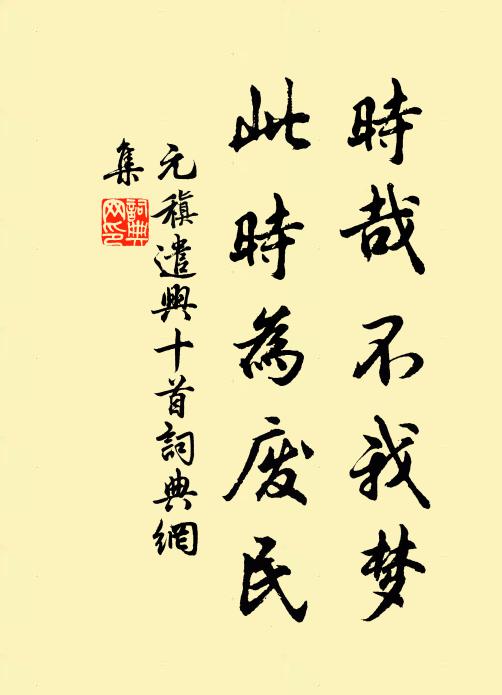 時哉不我梦
此時為废民
元稹遣興十首詞典網
集
詞典
网印